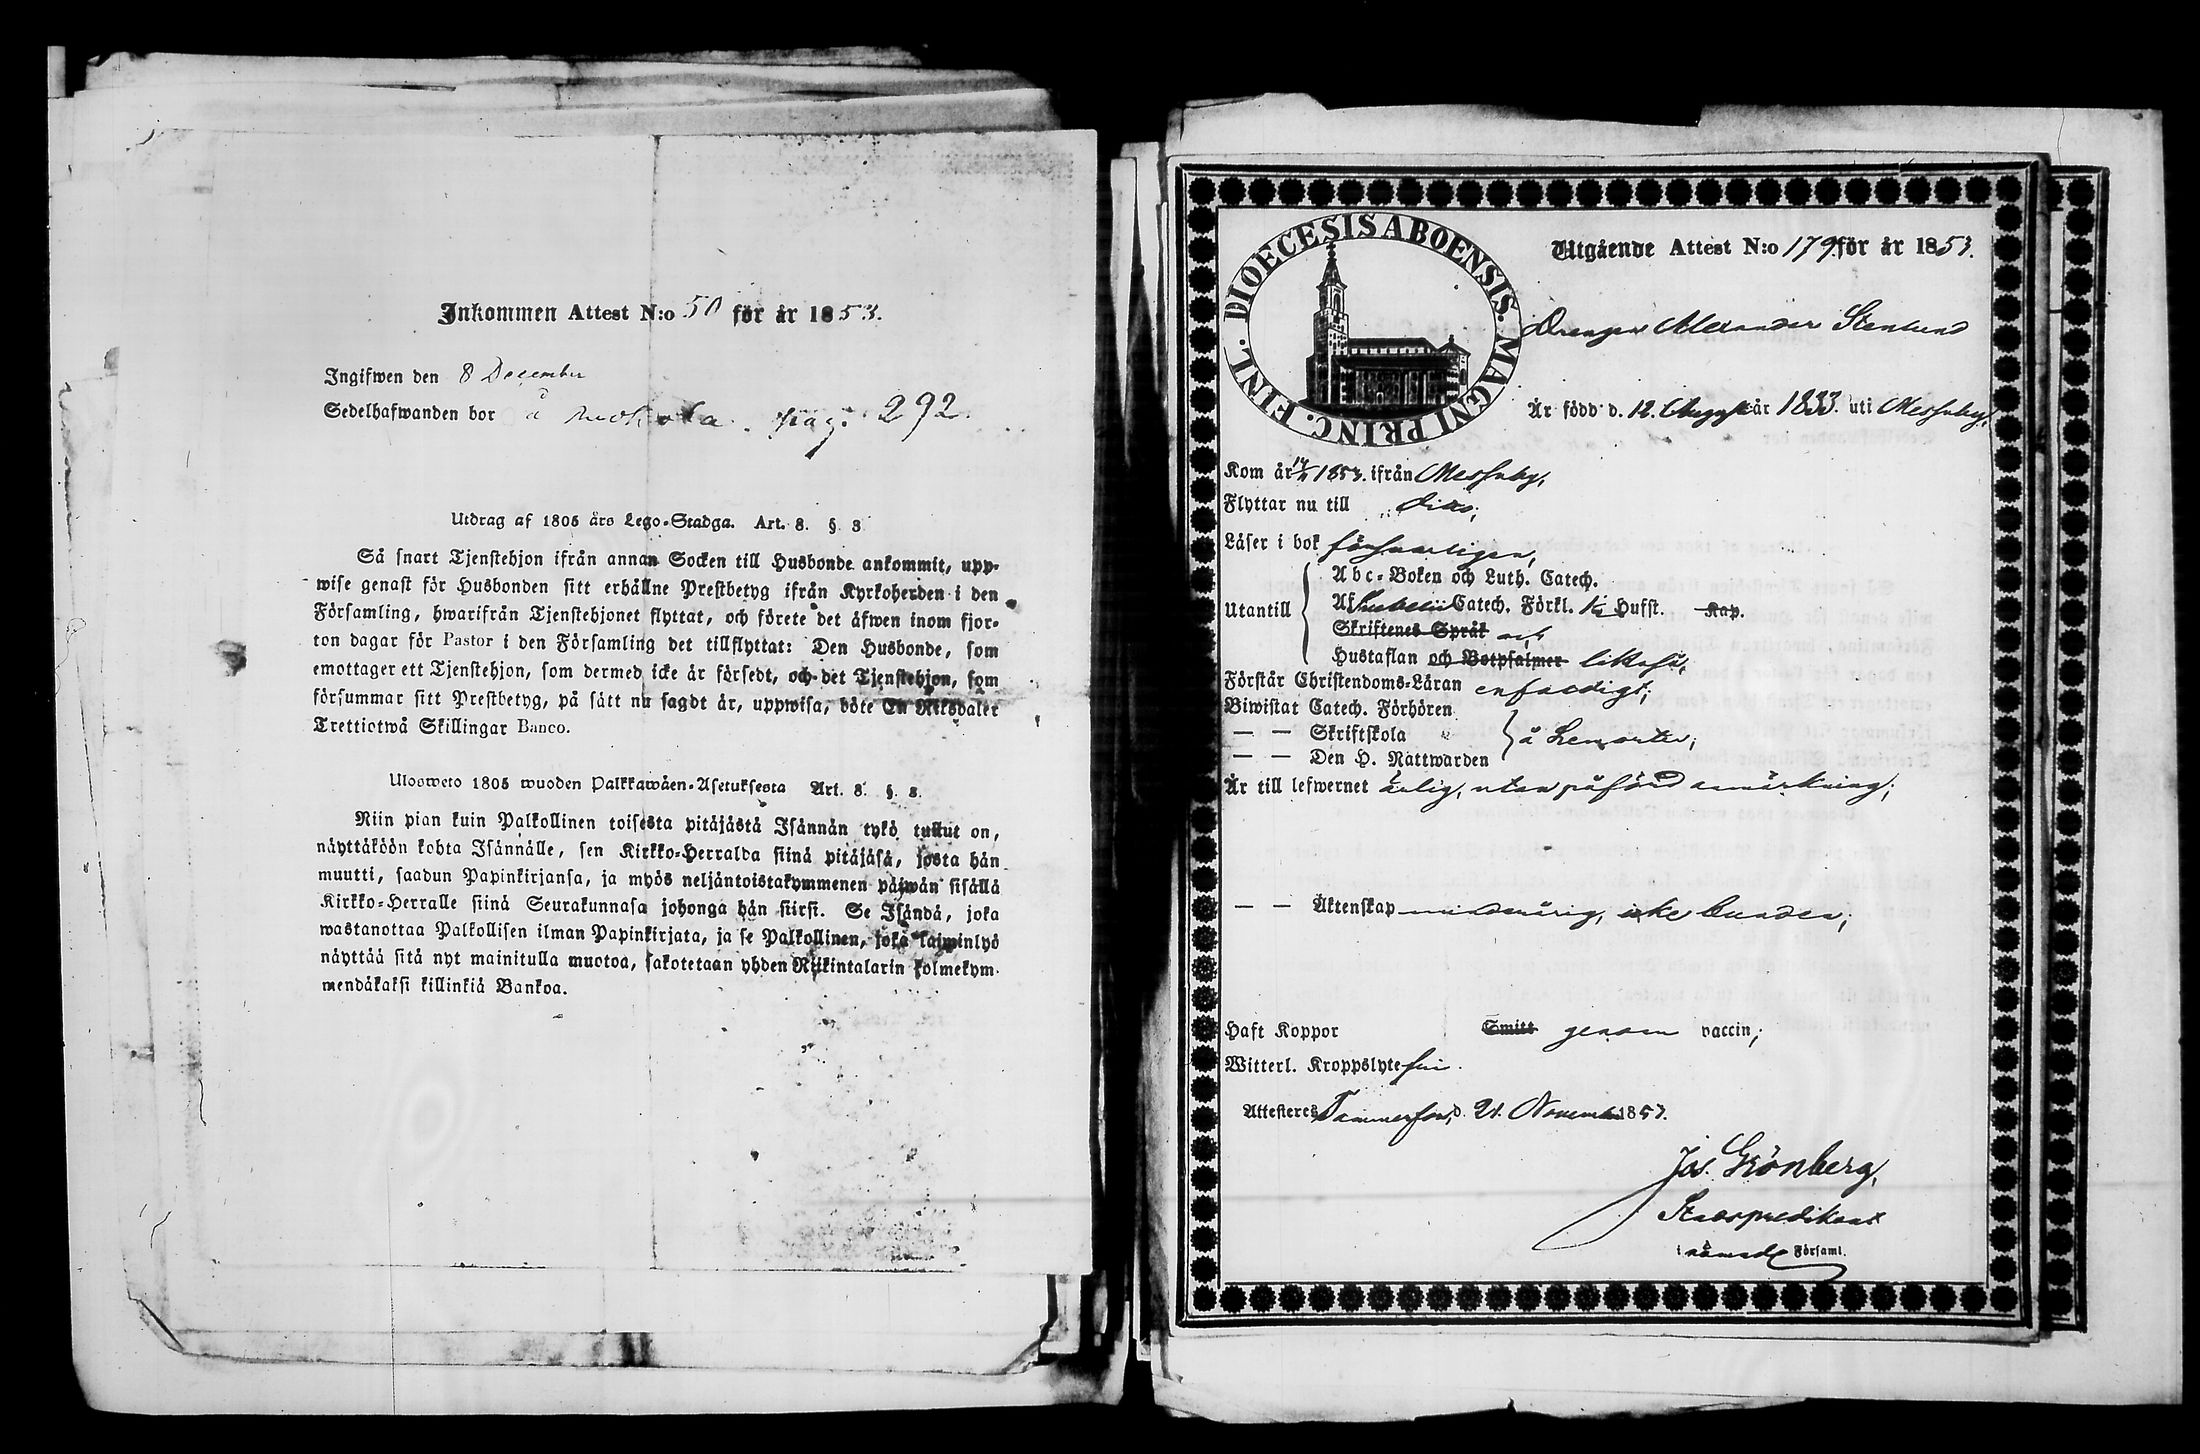 Inkommen Attest N:o 50 för år 1853.
Ingifwen den 8 December
Sedelhafwanden bor å pag. 292
Utdrag af 1805 års Lego-Stadga. Art. 8. § 3
Så snart Tjenstehjon ifrån annan Socken till Husbonde ankommit, upp-
wise genast för Husbonden sitt erhållne Prestbetyg ifrån Kyrkoherden i den
Församling, hwarifrån Tjenstehjonet flyttat, och förete det äfwen inom fjor-
ton dagar för Pastor i den Församling det tillflyttat: Den Husbonde, som
emottager ett Tjenstehjon, som dermed icke är försedt, och det Tjenstehjon, som
försummar sitt Prestbetyg, på sätt nu sagdt är, uppwisa, böte En Riksdaler
Trettiotwå Skillingar Banco.
Ulosweto 1805 wuoden Palkkawäen-Asetuksesta Art. 8. §. 3.
Niin pian kuin Palkollinen toisesta pitäjästä Isännän tykö tullut on,
näyttäköön kohta Isännälle, sen Kirkko-Herralda siinä pitäjäsä, josta hän
muutti, saadun Papinkirjansa, ja myös neljäntoistakymmenen päiwän sisällä
Kirkko-Herralle siinä Seurakunnasa johonga hän siirsi. Se Isändä, joka
wastanottaa Palkollisen ilman Papinkirjata, ja se Palkollinen, joka laiminlyö
näyttää sitä nyt mainitulla muotoa, sakotetaan yhden Riikintalarin kolmekym-
mendäkaksi killinkiä Bankoa.
DIOECESIS ABOENSIS. MAGNI PRINC. FINL.
Utgående Attest N:o 179 för år 1853.
Drengen Alexander Stenlund
Är född d. 12. Augusti år 1833. uti Messuby,
Kom år 1853. ifrån Messuby,
Flyttar nu till dito;
Läser i bok försvarligen,
Abc-Boken och Luth. Catech.
Utantill Af Svebelii Catech. Förkl. 1/2 Hufst. Kap.
Skriftenes Språk och
Hustaflan och Botpsalmer likaså,
Förstår Christendoms-Läran enfaldigt;
Biwistat Catech. Förhören
— — Skriftskola å Lemorter;
— — Den H. Nattwarden
Är till lefwernet ärlig, utan påförd anmärkning;
— — Äktenskap minderårig, icke bunden;
Haft Koppor Smitt genom vaccin;
Witterl. Kroppslyte fri.
Attesteres Tammerfors, d. 21. November 1853.
Jos. Grönberg,
Stadspredikant
i nämnde Församl.